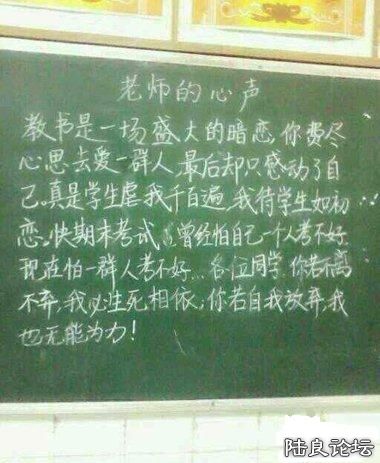 老师的心声
教书是一场盛大的暗恋,你费尽
心思去爱一群人,最后却只感动了自
己,真是学生虐我千百遍,我待学生如初
恋。快期末考试,曾经怕自己一个人考不好
现在怕一群人考不好…各位同学,你若不离
不弃,我必生死相依,你若自我放弃,我
也无能为力!
陆良论坛